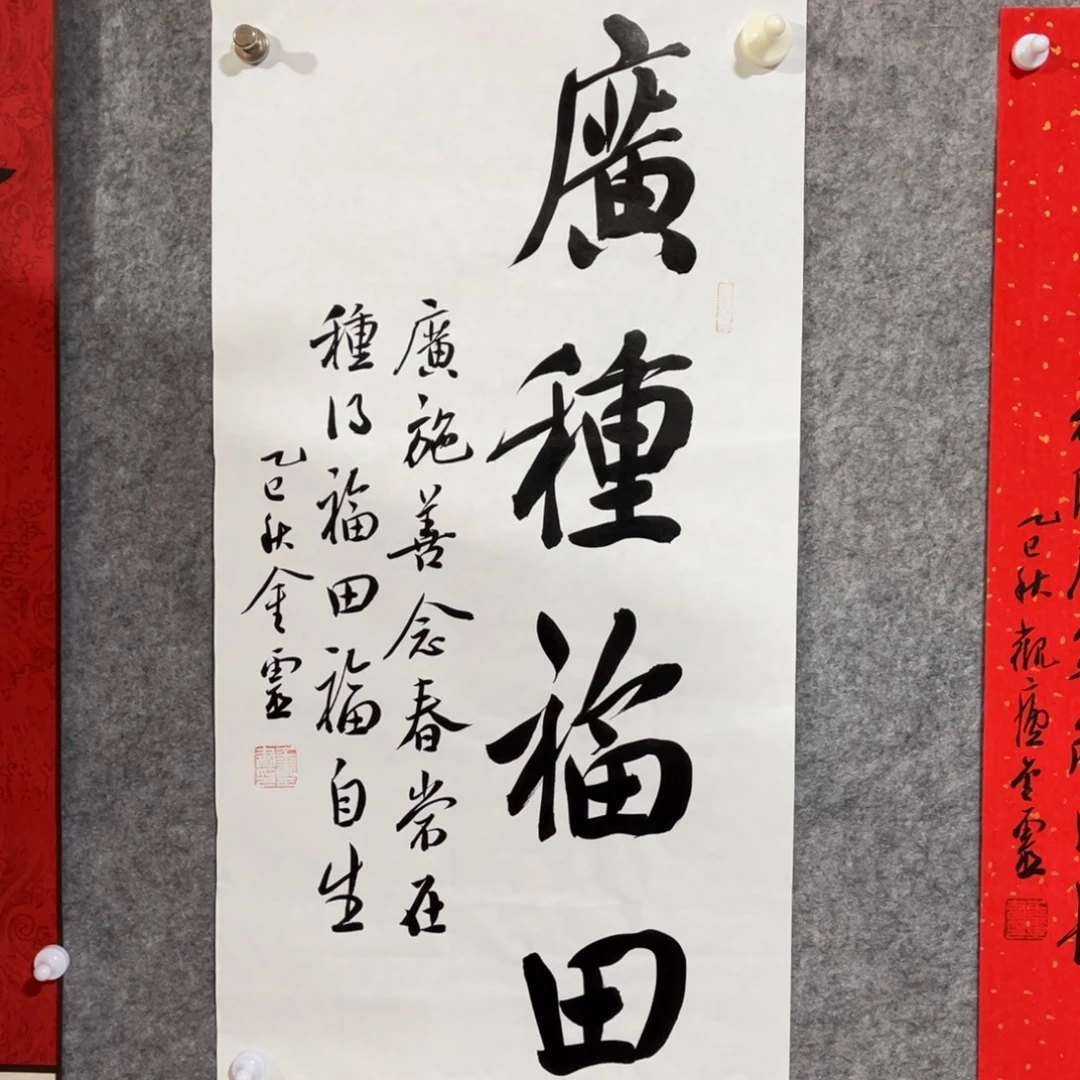 廣種福田
廣施善念春常在
種得福田福自生
乙巳秋金靈
乙巳秋觀廬金靈